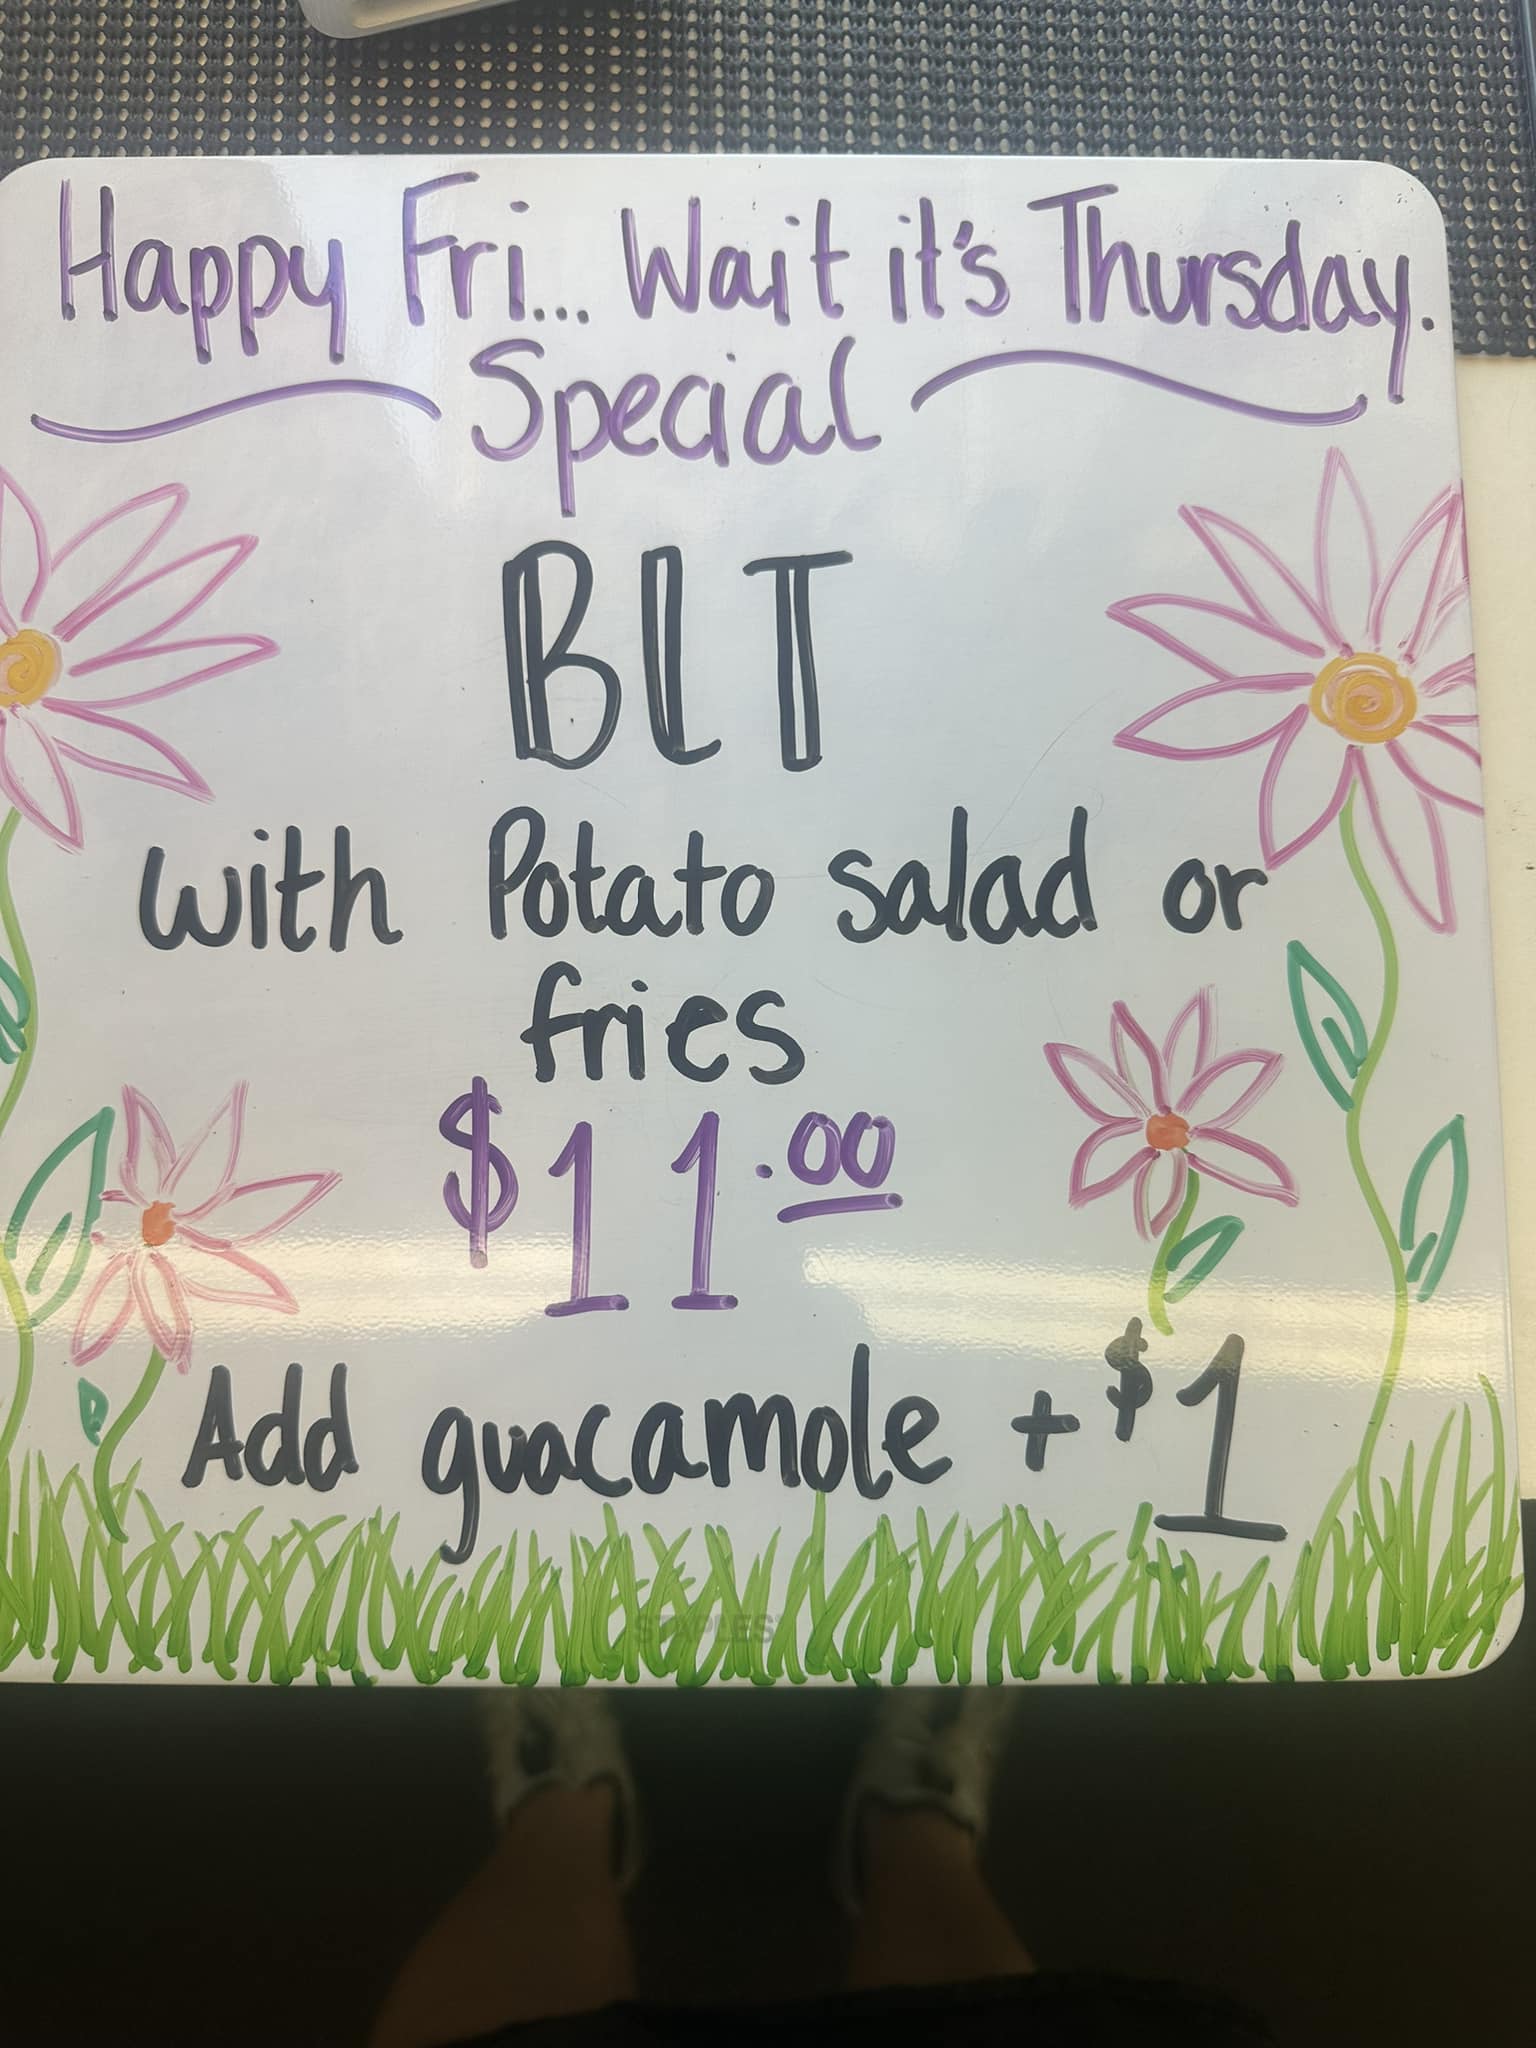 Happy Fri... Wait it's Thursday.
Special
BLT
with Potato salad or
fries
$11.00
Add guacamole +$1
STAPLES